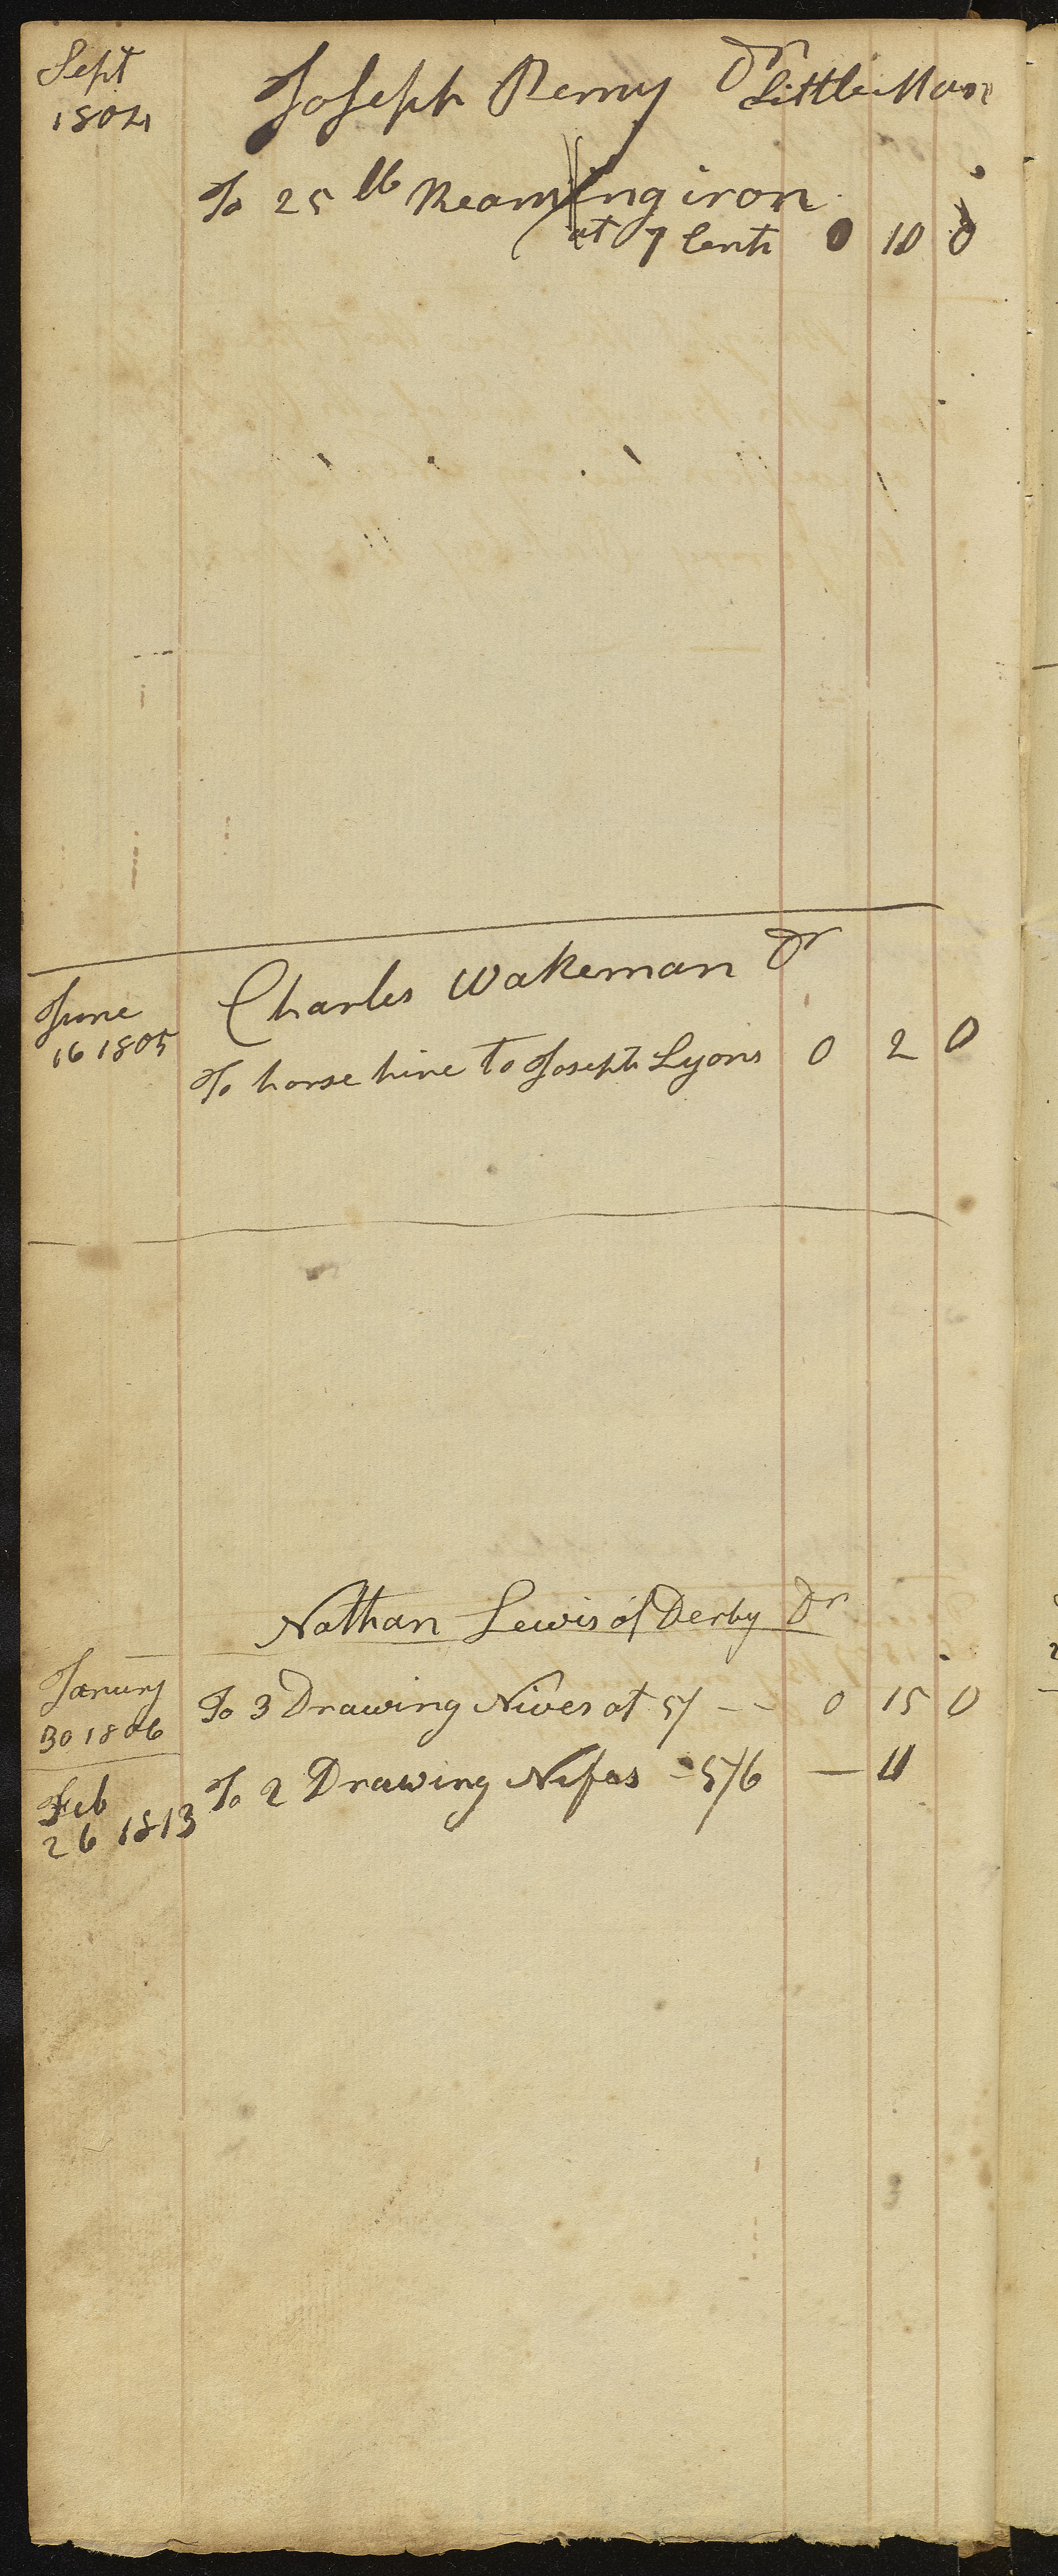 Sept
1804
Joseph Perry Dr
Little Man
To 25 lb
iron
at 7 Cents 0 10 0
Charles Wakeman Dr
June
16 1805
To horse hire to Joseph Lyons 0 2 0
Nathan Lewis of Derby Dr
Janury
30 1806
To 3 Drawing Nives at 5/ -- 0 15 0
Feb
26 1813
To 2 Drawing Nifes - 5/6 — 11